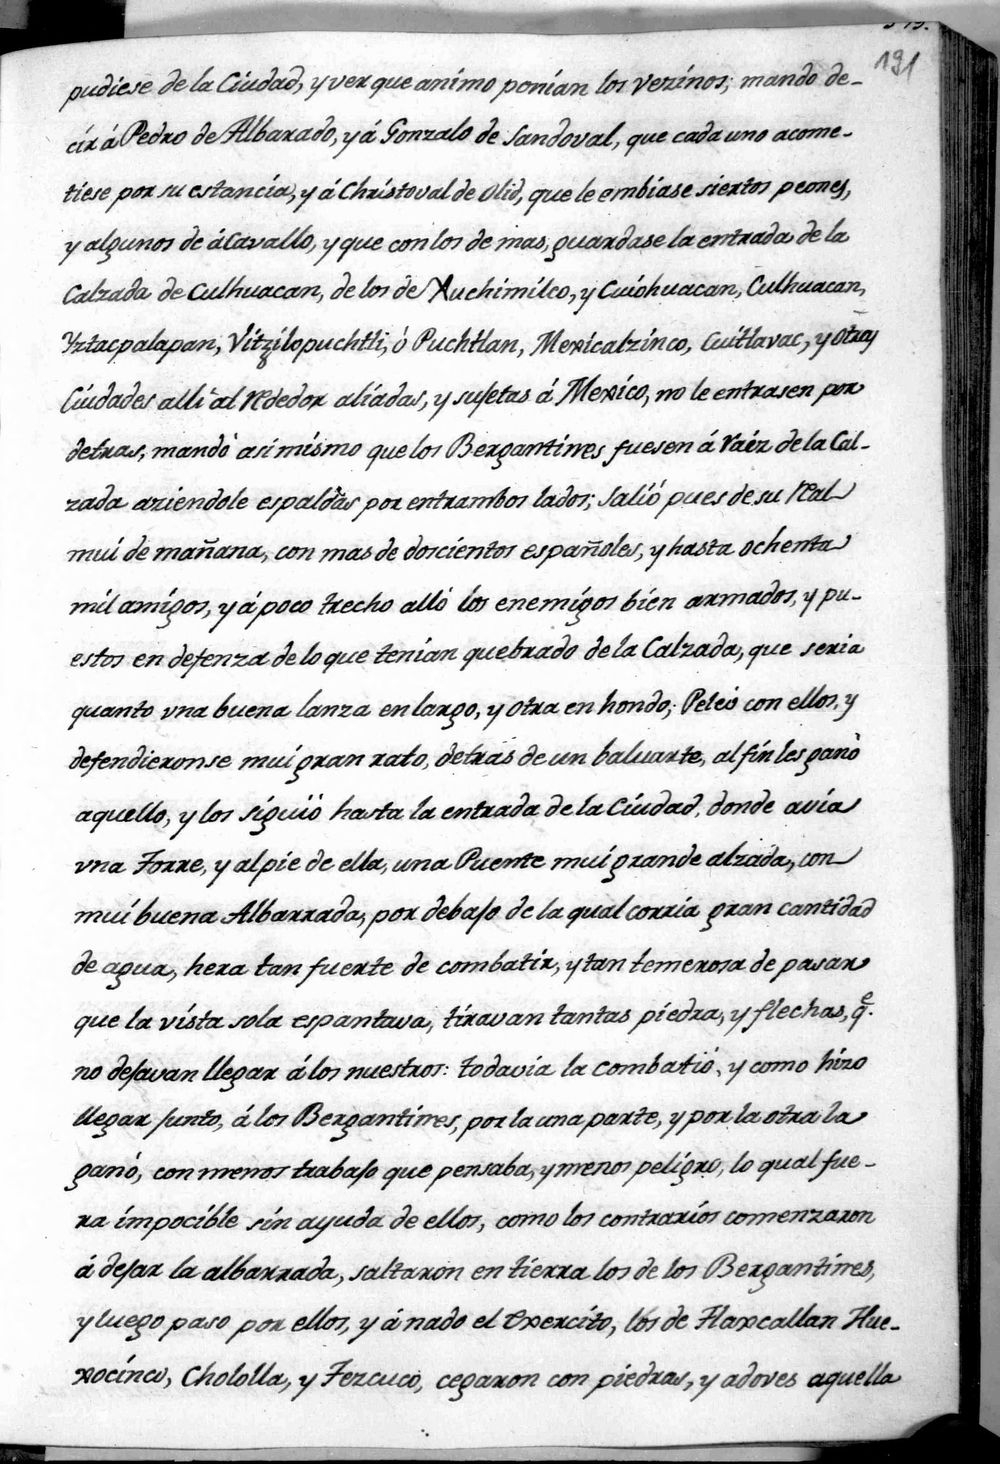 191
pudiese de la Ciudad, y ver que animo ponian los vezinos; mando de-
cir á Pedro de Albarado, y á Gonzalo de Sandoval, que cada uno acome-
tiese por su estancia, y á Christoval de Olid, que le embiase siertos peones,
y algunos de ácavallo, y que con los de mas, guardase la entrada de la
Calzada de Culhuacan, de los de Xuchimilco, y Cuiohuacan, Culhuacan,
Yztacpalapan, Vitzilopuchtli, ó Puchtlan, Mexicalzinco, Cuitlavac, y otras
Ciudades alli al rededor aliadas, y sujetas á Mexico, no le entrasen por
detras, mandó asi mismo que los Bergantines fuesen á raiz de la Cal-
zada aziendole espaldas por entrambos lados; salió pues de su real
mui de mañana, con mas de doscientos españoles, y hasta ochenta
mil amigos, y á poco trecho alló los enemigos bien armados, y pu-
estos en defenza de lo que tenian quebrado de la Calzada, que seria
quanto vna buena lanza en largo, y otra en hondo; Peleó con ellos, y
defendieronse mui gran rato, detras de un baluarte, al fin les ganó
aquello, y los siguió hasta la entrada de la Ciudad, donde avia
vna Torre, y al pie de ella, una Puente mui grande alzada, con
mui buena Albarrada, por debajo de la qual corria gran cantidad
de agua, hera tan fuerte de combatir, y tan temerosa de pasar
que la vista sola espantava, tiravan tantas piedra, y flechas, q.e
no dejavan llegar á los nuestros: todavia la combatió, y como hizo
llegar junto, á los Bergantines, por la una parte, y por la otra la
ganó, con menos trabajo que pensaba, y menos peligro, lo qual fue-
ra impocible sin ayuda de ellos, como los contrarios comenzaron
á dejar la albarrada, saltaron en tierra los de los Bergantines,
y luego paso por ellos, y á nado el Exercito, los de Tlaxcallan Hue-
xocinco, Chololla, y Tezcuco, cegaron con piedras, y adoves aquella